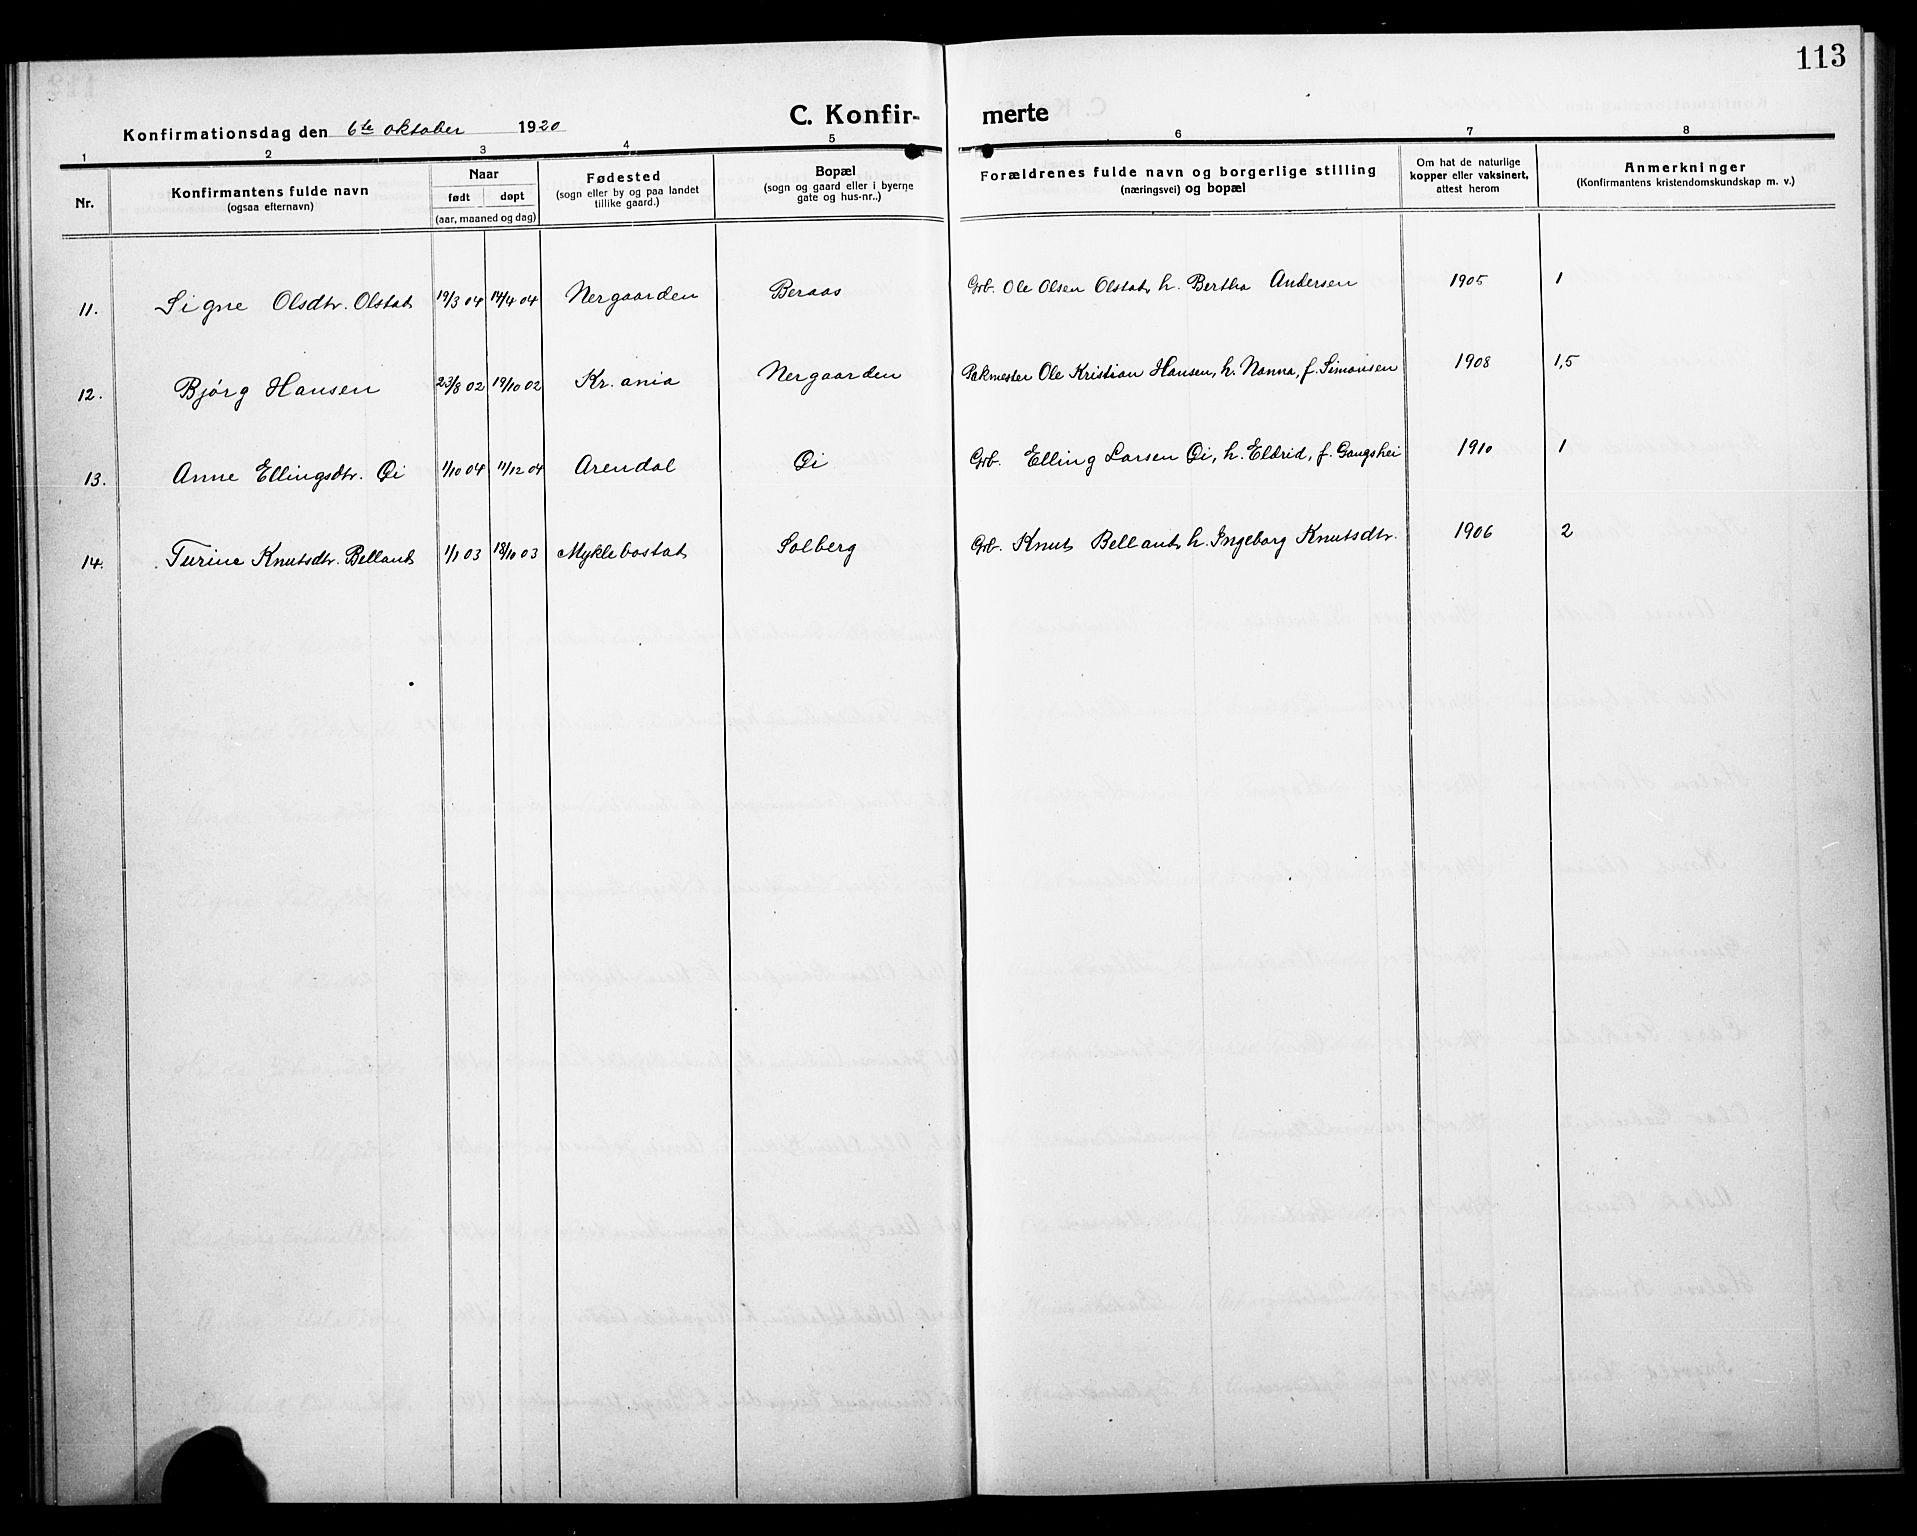 113
C. Konfir- merte
Konfirmationsdag den 6te oktober 1920
1 2 3 4 5 6 7 8
Nr. Konfirmantens fulde navn (ogsaa efternavn) Naar født døpt (aar, maaned og dag) Fødested (sogn eller by og paa landet tillike gaard.) Bopæl (sogn og gaard eller i byerne gate og hus-nr..) Forældrenes fulde navn og borgerlige stilling (næringsvei) og bopæl Om hat de naturlige kopper eller vaksinert, attest herom Anmerkninger (Konfirmantens kristendomskundskap m. v.)
11. Signe Olsdtr. Olstat 19/3 04 14/4 04 Nergaarden Beraas Grb. Ole Olsen Olstat, h. Bertha Andersen 1905 1
12. Bjørg Hansen 23/8 02 19/10 02 Kr.ania Nergaarden Pakmester Ole Kristian Hansen, h. Nanna, f. Simonsen 1908 1,5
13. Anne Ellingsdtr. Øi 1/10 04 11/12 04 Arendal Øi Grb. Elling Larsen Øi, h. Eldrid, f. Gangshei 1910 1
14. Turine Knutsdtr. Belland 1/1 03 18/10 03 Myklebostat Solberg Grb. Knut Belland, h. Ingeborg Knutsdtr. 1906 2